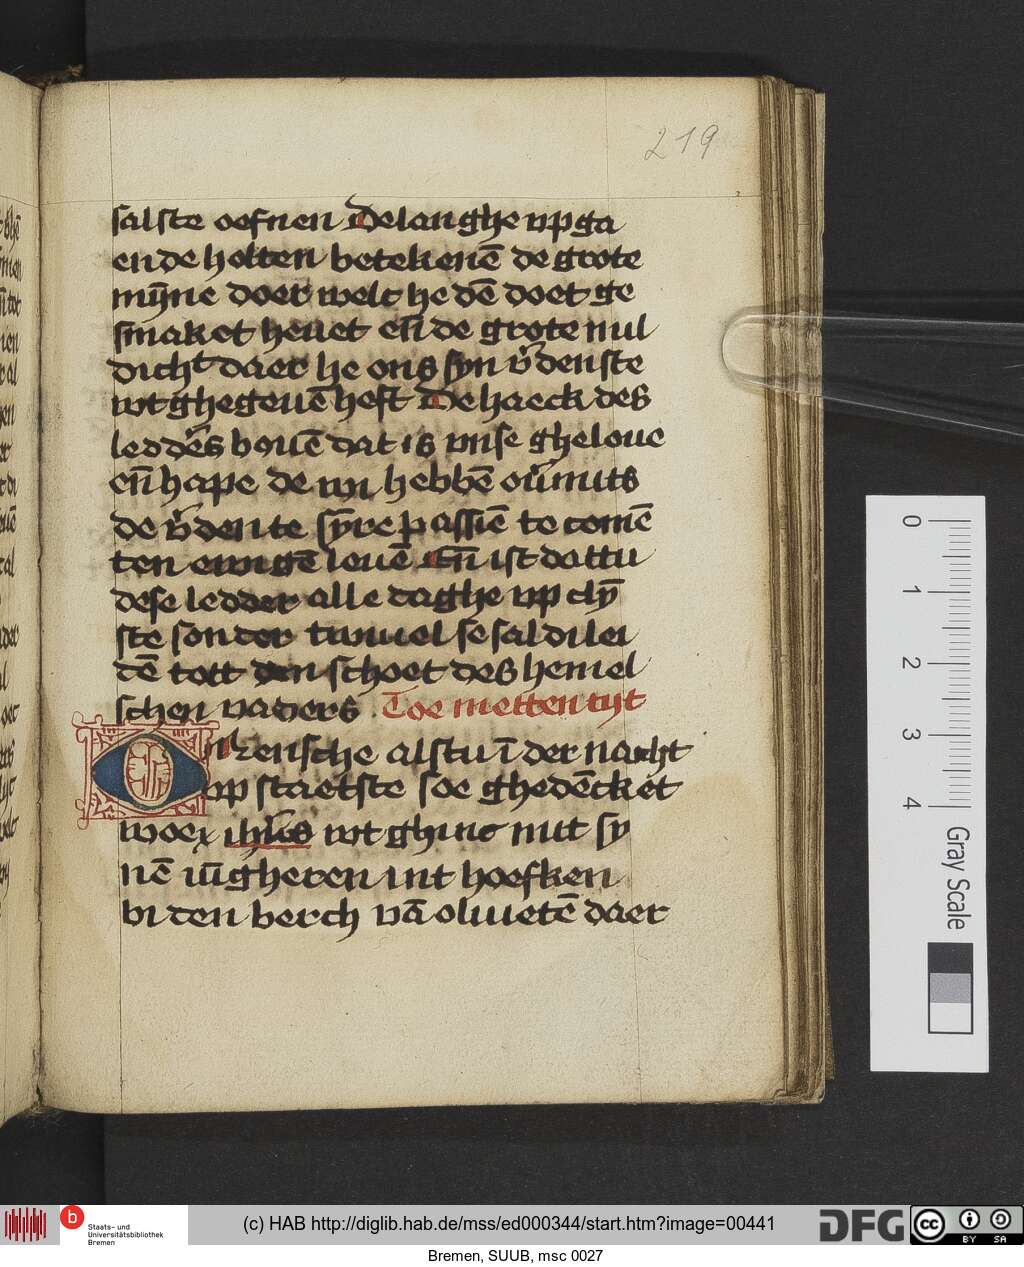 219
salste oefnen De langhe vpga
ende holten betekenē de grote
mȳne doer welc he dē doet ge
smaket heuet eñ de grote mil
dicht daer he ons syn v̄denste
wt ghegeuē heft De haeck des
leddēs bouē dat is vnse gheloue
eñ hape de wi hebbē ouīmits
de v̄denste sȳre passiē te comē
ten ewigē leuē Eñ ist dattu
dese ledder alle daghe vp clȳ
ste sonder twiuel se sal di lei
dē tott den schoet des hemel
schen vaders Toe metten tijt
O mensche alstu ī der nacht
op staetste soe ghedēcket
woe ihūs wt ghinc mit sy
nē iūgheren int hoefken
bi den berch vā oliuetē daer
0
1
2
3
4
Gray Scale
b
Staats- und
Universitätsbibliothek
Bremen
(c) HAB http://diglib.hab.de/mss/ed000344/start.htm?image=00441
DFG
cc
BY SA
Bremen, SUUB, msc 0027